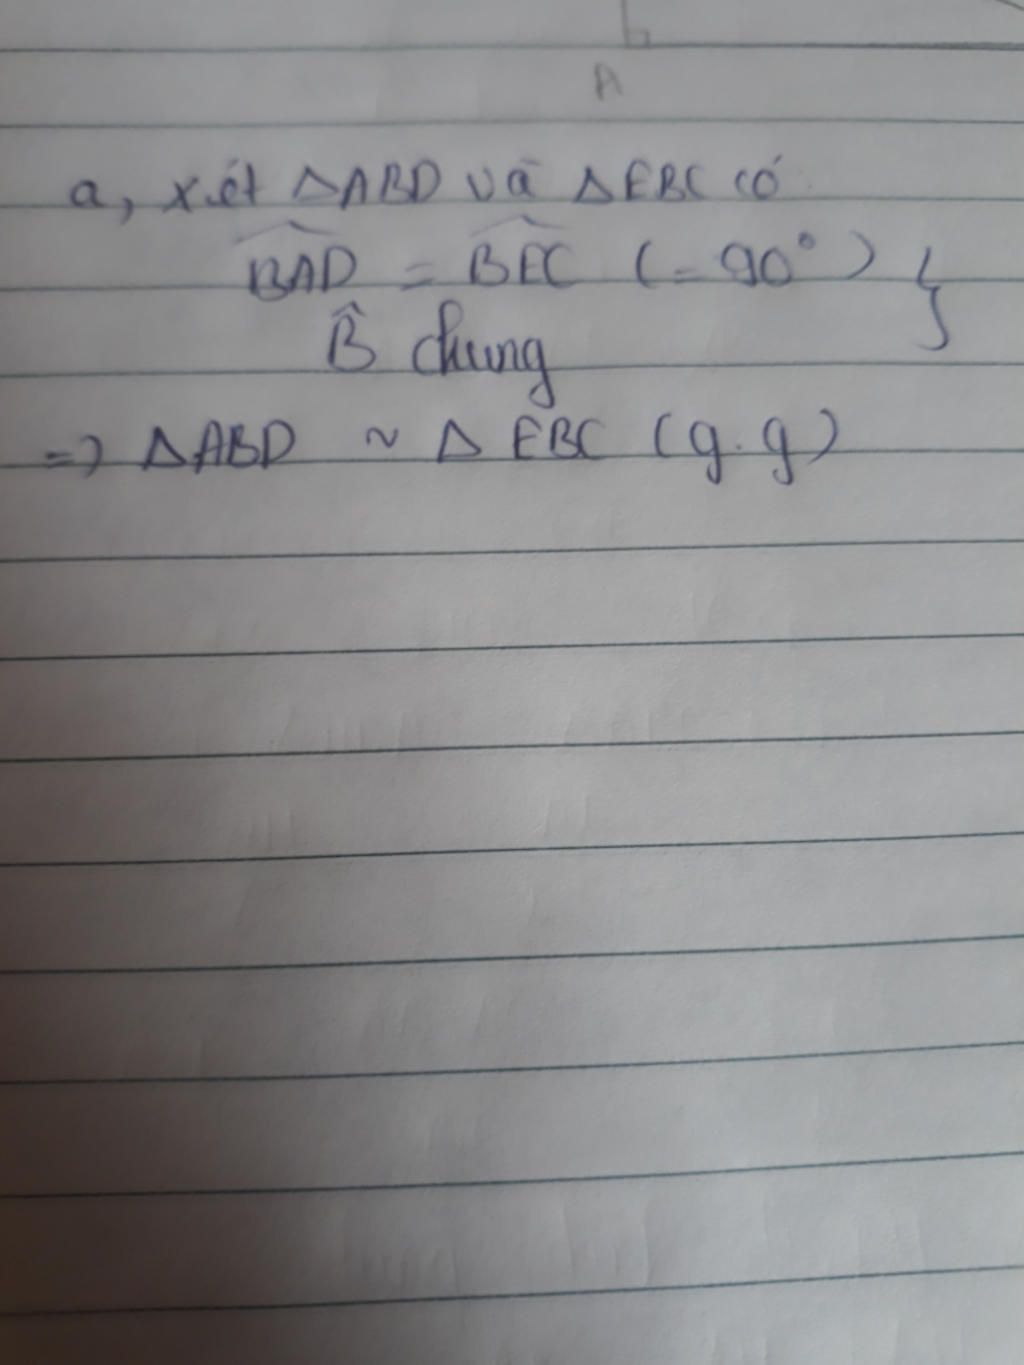 A
a, xét ΔABD và ΔEBC có
\widehat{BAD} = \widehat{BEC} (= 90°) }
B̂ chung
=> ΔABD ~ Δ EBC (g.g)